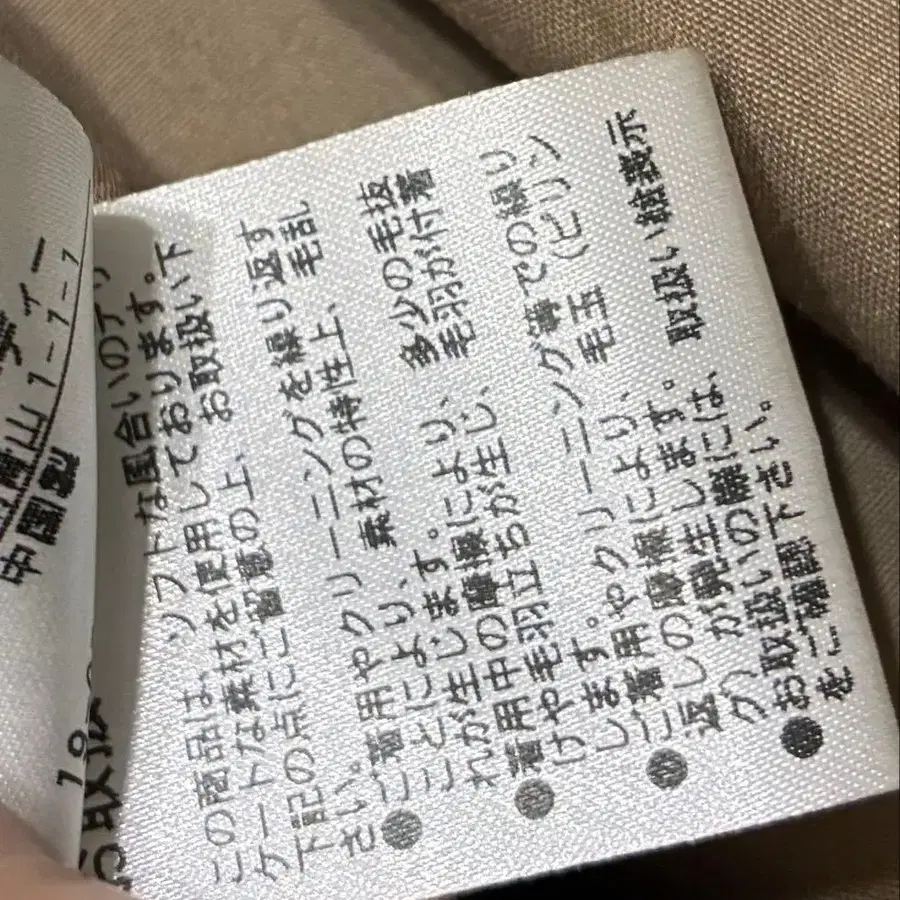 中国製
お取扱
この商品は、ソフトな風合いのデリ
ケートな素材を使用しております。
下記の点にご留意の上、お取扱い下
さい。
●ご着用やクリーニングを繰り返す
ことにより、素材の特性上、毛乱
れが生じます。
●着用中の摩擦により、多少の毛抜
けや毛羽立ちが生じ、毛羽が付着
します。
●ご着用やクリーニング等での繰り
返しの摩擦により、毛玉(ピリン
グ)が発生します。
●お取扱いの際には、取扱い絵表示
をご確認下さい。